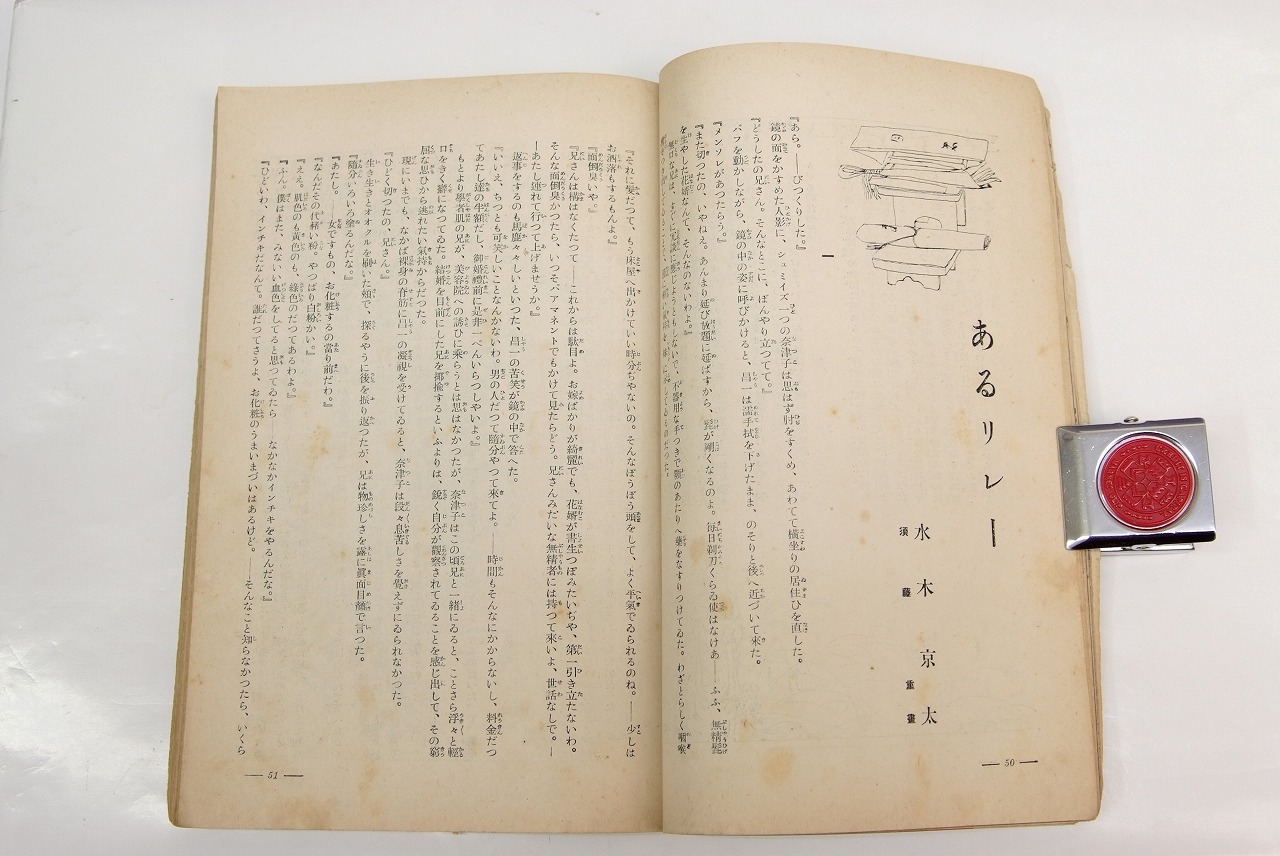 あるリレー
水木京太
須藤重畫
一
『あら。――びつくりした。』
鏡の面をかすめた人影に、シュミイズ一つの奈津子は思はず肘をすくめ、あわてて横坐りの居住ひを直した。
『どうしたの兄さん。そんなとこに、ぼんやり立つてて。』
パフを動かしながら、鏡の中の姿に呼びかけると、昌一は濡手拭を下げたまま、のそりと後へ近づいて來た。
『メンソレがあつたらう。』
『また切つたの、いやねえ。あんまり延び放題に延ばすから、髭が剛くなるのよ。毎日剃刀くらゐ使はなけあ――ふふ、無精髭
を生やした花婿なんて、そんなのないわよ。』
じようともしないで、不器用な手つきで顎のあたりへ藥をなすりつけてゐた。わざとらしく咽喉
『それに髪だつて、もう床屋へ出かけていい時分ぢやないの。そんなぼうぼう頭をして、よく平氣でゐられるのね。――少しは
お洒落もするもんよ。』
『面倒臭いや。』
『兄さんは構はなくたつて――これからは駄目よ。お嫁ばかりが綺麗でも、花婿が書生つぽみたいぢや、第一引き立たないわ。
そんな面倒臭かつたら、いつそパアマネントでもかけて見たらどう。兄さんみたいな無精者には持つて來いよ、世話なしで。―
―あたし連れて行つて上げませうか。』
返事をするのも馬鹿々々しいといつた、昌一の苦笑が鏡の中で答へた。
『いいえ、ちつとも可笑しいことなんかないわ。男の人だつて隨分やつて來てよ。――時間もそんなにかからないし、料金だつ
てあたし達の半額だし、御婚禮前に是非一ぺんいらつしやいよ。』
もとより學者肌の兄が、美容院への誘ひに乘らうとは思はなかつたが、奈津子はこの頃兄と一緒にゐると、ことさら浮々と輕
口をきく癖になつてゐた。結婚を目前にした兄を揶揄するといふよりは、鋭く自分が觀察されてゐることを感じ出して、その窮
屈な思ひから逃れたい氣持からだつた。
現にいまでも、なかば裸身の脊筋に昌一の凝視を受けてゐると、奈津子は段々息苦しさを覺えずにゐられなかつた。
『ひどく切つたの、兄さん。』
生き生きとオオクルを刷いた頬で、探るやうに後を振り返つたが、兄は物珍しさを露に眞面目顏で言つた。
『隨分いろいろ塗るんだな。』
『あたし。――女ですもの、お化粧するの當り前だわ。』
『なんだその代赭い粉。やつぱり白粉かい。』
『ええ。肌色のも黄色のも、綠色のだつてあるわよ。』
『ふん。僕はまた、みないい血色をしてると思つてゐたら――なかなかインチキをやるんだな。』
『ひどいわ、インチキだなんて。誰だつてさうよ、お化粧のうまいまづいはあるけど。――そんなこと知らなかつたら、いくら
50
51